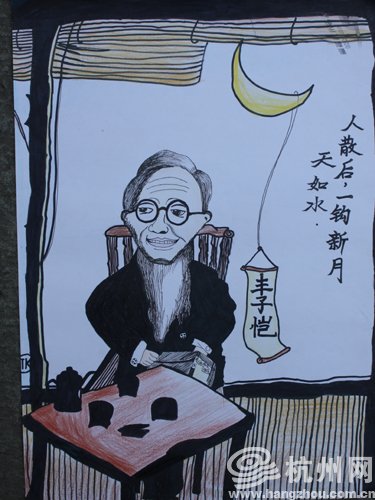 人散后，一钩新月
天如水.
丰子恺
TK
杭州网
www.hangzhou.com.cn